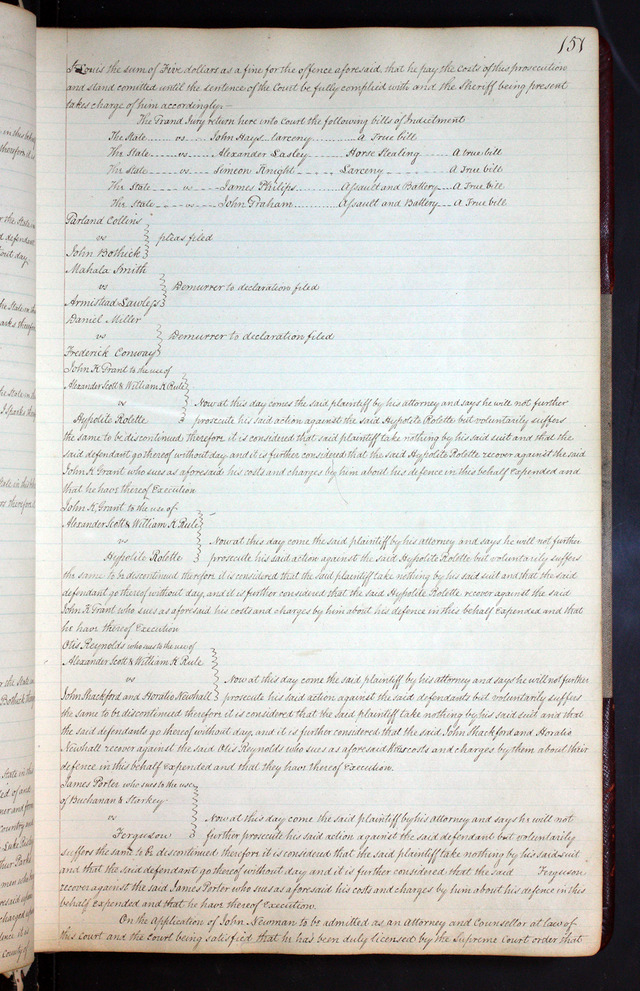 157
St Louis the sum of Five dollars as a fine for the offence aforesaid, that he pay the costs of this prosecution
and stand comitted until the sentence of the Court be fully complied with and the Sheriff being present
takes charge of him accordingly.—
The Grand Jury return here into Court the following bills of Indictment
The State ...... vs ..... John Hays Larceny .......... A True bill
The State ...... vs ..... Alexander Lasley ....... Horse Stealing ...... A true bill
The State ..... vs ..... Simeon Knight ..... Larceny ......... A True bill
The State ..... vs ..... James Philips ....... Assault and Battery .... A True bill
The State ..... vs ..... John Graham ....... Assault and Battery .... A True bill
Parland Collins
vs } pleas filed
John Bothick
Mahala Smith
vs } Demurrer to declaration filed
Armistead Lawless
Daniel Miller
vs } Demurrer to declaration filed
Frederick Conway
John K Grant to the use of
Alexander Scott & William K Rule
vs } Now at this day comes the said plaintiff by his attorney and says he will not further
Hypolite Rolette } prosecute his said action against the said Hypolite Rolette but voluntarily suffers
the same to be discontinued therefore it is considered that said plaintiff take nothing by his said suit and that the
said defendant go thereof without day and it is further considered that the said Hypolite Rolette recover against the said
John K Grant who sues as aforesaid his costs and charges by him about his defence in this behalf Expended and
that he have thereof Execution
John K Grant to the use of
Alexander Scott & William K Rule
vs } Now at this day come the said plaintiff by his attorney and says he will not further
Hypolite Rolette } prosecute his said action against the said Hypolite Rolette but voluntarily suffers
the same to be discontinued therefore it is considered that the said plaintiff take nothing by his said suit and that the said
defendant go thereof without day, and it is further considered that the said Hypolite Rolette recover against the said
John K Grant who sues as aforesaid his costs and charges by him about his defence in this behalf Expended and that
he have thereof Execution
Otis Reynolds who sues to the use of
Alexander Scott & William K Rule
vs } Now at this day come the said plaintiff by his attorney and says he will not further
John Shackford and Horatio Newhall } prosecute his said action against the said defendants but voluntarily suffers
the same to be discontinued therefore it is considered that the said plaintiff take nothing by his said suit and that
the said defendants go thereof without day, and it is further considered that the said John Shackford and Horatio
Newhall recover against the said Otis Reynolds who sues as aforesaid costs and charges by them about their
defence in this behalf Expended and that they have thereof Execution.
James Porter who sues to the use
of Buchanan & Starkey
vs } Now at this day come the said plaintiff by his attorney and says he will not
Ferguson } further prosecute his said action against the said defendant but voluntarily
suffers the same to be discontinued therefore it is considered that the said plaintiff take nothing by his said suit
and that the said defendant go thereof without day and it is further considered that the said Ferguson
recover against the said James Porter who sues as aforesaid his costs and charges by him about his defence in this
behalf expended and that he have thereof Execution.
On the Application of John Newnan to be admitted as an Attorney and Counsellor at law of
this court and the court being satisfied that he has been duly licensed by the Supreme Court order that